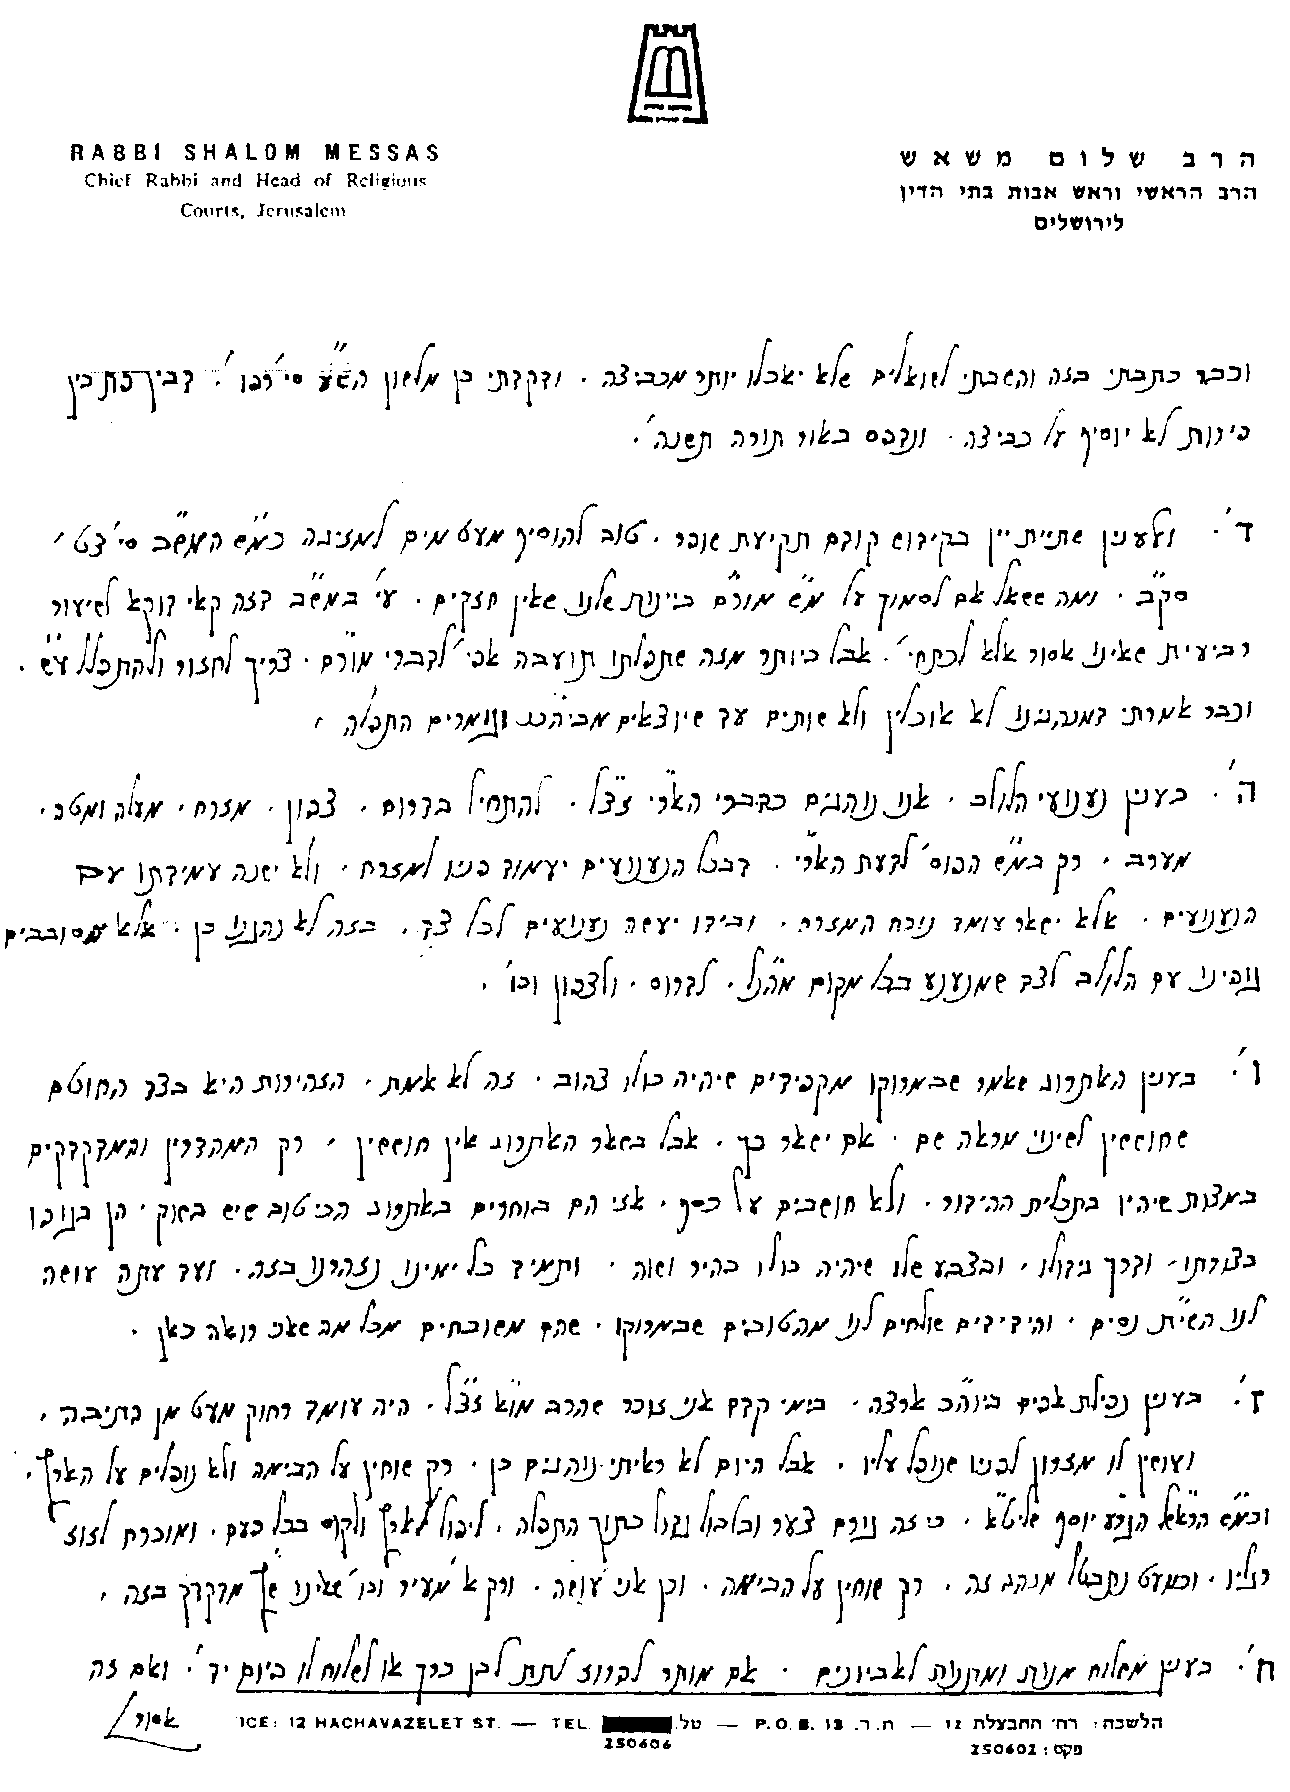 RABBI SHALOM MESSAS
Chief Rabbi and Head of Religious
Courts, Jerusalem
הרב שלום משאש
הרב הראשי וראש אבות בתי הדין
לירושלים
וכבר כתבתי בזה והשבתי לשואלים שלא יאכלו יותר מכביצה. ודקדתי כן מלשון הש"ע סי' רפו'. דבין פת בין
פירות לא יוסיף על כביצה. ונדפס באור תורה תשנה'.
ד'. ולענין שתיית יין בקידוש קודם תקיעת שופר. טוב להוסיף מעט מים למזיגה כמ"ש המש"ב סי' צט'
סק"ב. ומה ששאל אם לסמוך על מ"ש מור"ם ביינות שלנו שאין חזקים. עי' במש"ב דזה קאי דוקא לשיעור
רביעית שאינו אסור אלא לכתחי'. אבל ביותר מזה שתפלתו תועבה אפי' לדברי מור"ם. צריך לחזור ולהתפלל ע"ש.
וכבר אמרתי דמנהגינו לא אוכלין ולא שותים עד שיוצאים מביהכנ"ס וגומרים התפלה.
ה'. בענין נענועי הלולב. אנו נוהגים כדברי האר"י זצ"ל. להתחיל בדרום. צפון. מזרח. מעלה ומטה.
מערב. רק במ"ש הפוס' לדעת האר"י. דבכל הנענועים יעמוד פניו למזרח. ולא ישנה עמידתו עם
הנענועים. אלא ישאר עומד נוכח המזרח. ובידו יעשה נענועים לכל צד. בזה לא נהגנו כן. אלא מסובבים
גופינו עם הלולב לצד שמנענע בכל מקום מהנ"ל. לדרום. ולצפון וכו'.
ו'. בענין האתרוג שאמר שבמרוקו מקפידים שיהיה כולו צהוב. זה לא אמת. הזהירות היא בצד החוטם
שחוששין לשינוי מראה שם. אם ישאר כך. אבל בשאר האתרוג אין חוששין. רק המהדרין ובמדקדקים
במצות שיהיו בתכלית ההידור. ולא חושבים על כסף. אזי הם בוחרים באתרוג הכי טוב שיש בשוק. הן בגופו
בצורתו. ודרך גידולו. ובצבע שלו שיהיה כולו בהיר ושוה. ותמיד כל ימינו נזהרנו בזה. ועד עתה עושה
לנו השי"ת נסים. והידידים שולחים לנו מהטובים שבמרוקו. שהם משובחים מכל מה שאני רואה כאן.
ז'. בענין נפילת אפים ביוה"כ ארצה. בימי קדם אני זוכר שהרב מו"א זצ"ל. היה עומד רחוק מעט מן התיבה.
ועושין לו מזרון לפניו שנופל עליו. אבל היום לא ראיתי נוהגים כן. רק שוחין על הבימה ולא נופלים על הארץ.
וכמ"ש הראש"ל הגר"ע יוסף שליט"א. כי זה גורם צער ובלבול גדול בתוך התפלה. ליפול לארץ ולקום בכל פעם. ומוכרח לזוז
רגליו. וכמעט נתבטל מנהג זה. רק שוחין על הבימה. וכן אני עושה. ורק א' מעיר וב' שאינו מדקדק בזה.
ח'. בענין משלוח מנות ומתנות לאביונים. אם מותר לפרוז לתת לבן כרך או לשלוח לו ביום יד'. ואם זה
אסור
ICE: 12 HACHAVAZELET ST. — TEL. טל. — P.O.B. 13 ת.ד. — הלשכה: רח' החבצלת 12
250606
פקס: 250602